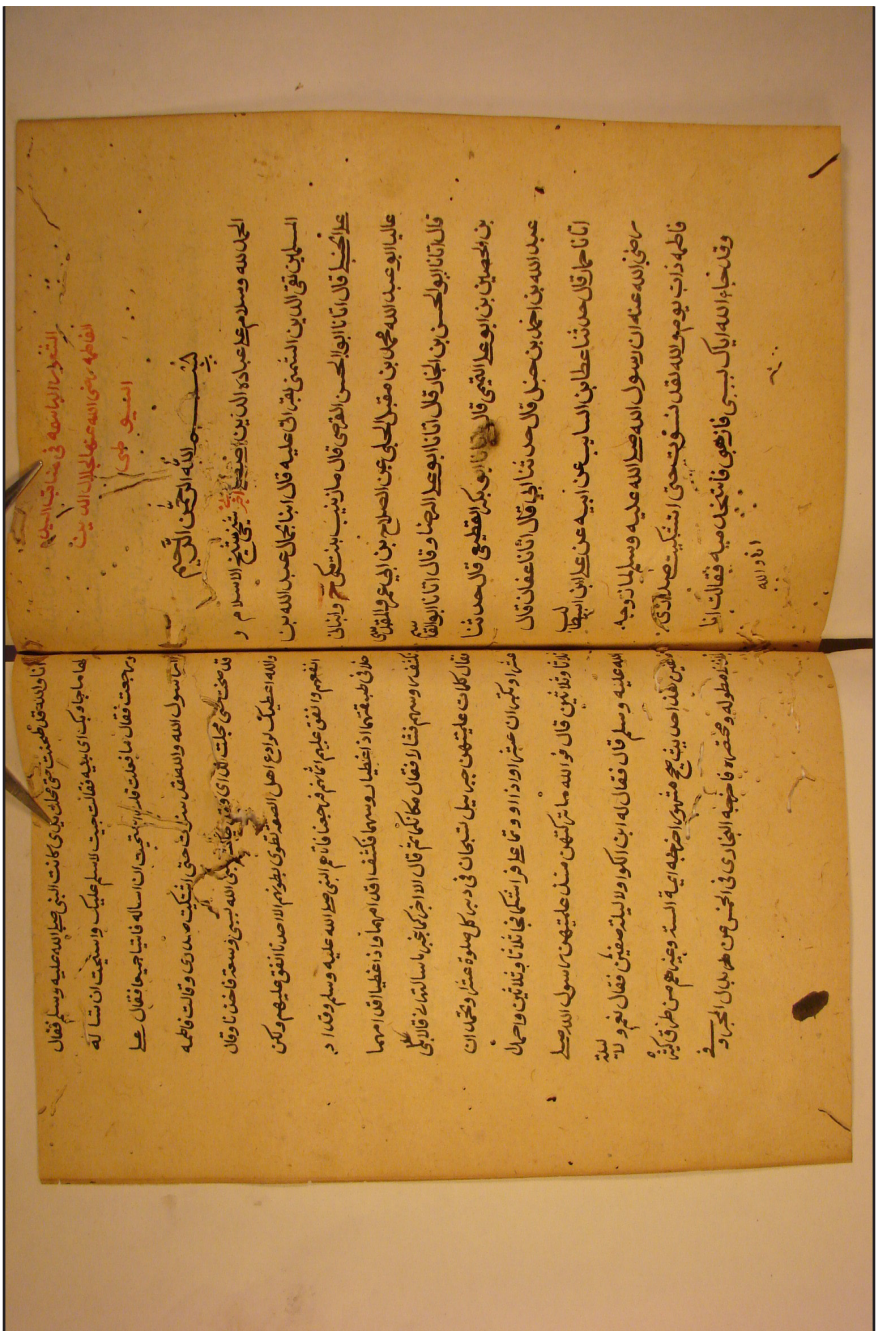 الثغور الباسمه في مناقب السيده
الفاطمه رضي الله عنها لجلال الدين
السيوطي
بسم الله الرحمن الرحيم
الحمد لله وسلام على عباده الذين اصطفى اخبرني شيخنا شيخ الاسلام و
المسلمين تقى الدين الشمني بقراتى عليه قال انبا جمال عبد الله بن
على الحنبلي قال انانا ابو الحسن العرضي قال ما زينب بنت مكي ح وانبانى
عاليا ابو عبد الله محمد بن مقبل الحلبي عن الصلاح بن ابي عمر المقدسي
قال انانا ابو الحسن بن البخار قال انانا ابو على الرضا وقال انانا ابو القاسم
بن الحصين بن ابو على التميمي قال انانا ابو بكر القطيعي قال حدثنا
عبد الله بن احمد بن حنبل قال حدثنا ابي قال اثانا عفان قال
اثانا حماد قال حدثنا عطا بن السايب عن ابيه عن على بن ابيطالب
رضي الله عنه ان رسول الله صلى الله عليه وسلم لما زوجه
فاطمه ذات يوم والله لقد سنوت حتى اشتكيت صدرى
وقد جاء الله اباك بسبى فازهبى فاستخدميه فقالت انا
انا والله
انا والله لقد طحنت حتى مجلت يداى فاتت النبى صلى الله عليه وسلم فقال
لها ما جاء بك اى بنيه فقالت جيت لاسلم عليك واستحيت ان تساله
ورجعت فقال ما فعلت قلت استحيت ان اساله فاتيا جميعا فقال على
يا رسول الله والله لقد سنوت حتى اشتكيت صدرى وقالت فاطمه
قد طحنت حتى مجلت يداى وقد جائك الله بسبى وسعة فاخدمنا وقال
والله اعطيك وادع اهل الصفه تطوى بطونهم لا اجد ما انفق عليهم ولكن
ابيعهم وانفق عليهم اثمانهم فرجعا فاتاهم النبى صلى الله عليه وسلم وقد اد
خلا في قطيفتهما اذ اغطيا روسهما تكشف اقدامهما واذا غطيا اقدامهما
تكشف روسهم فثارا فقال مكانكما ثم قال الا اخبركما بخير ما سالتمانى قالا بلى
فقال كلمات علمنيهن جبريل تسبحان في دبر كل صلوة عشرا وتحمدان
عشرا وتكبران عشرا واذا اويتما على فراشكما فسبحا ثلاثا وثلاثين واحمدا
ثلاثا وثلاثين قال فو الله ما تركتهن منذ علمنيهن رسول الله صلى
الله عليه وسلم قال فقال له ابن الكوا ولا ليلة صفين فقال نعم ولا ليلة
صفين هذا حديث صحيح مشهور اخرجه ايمة الستة وغيرهم من طرق كثيرة
مطوله ومختصره فاخرجه البخارى في الخمس من طريق بدل بن المحبر وفي